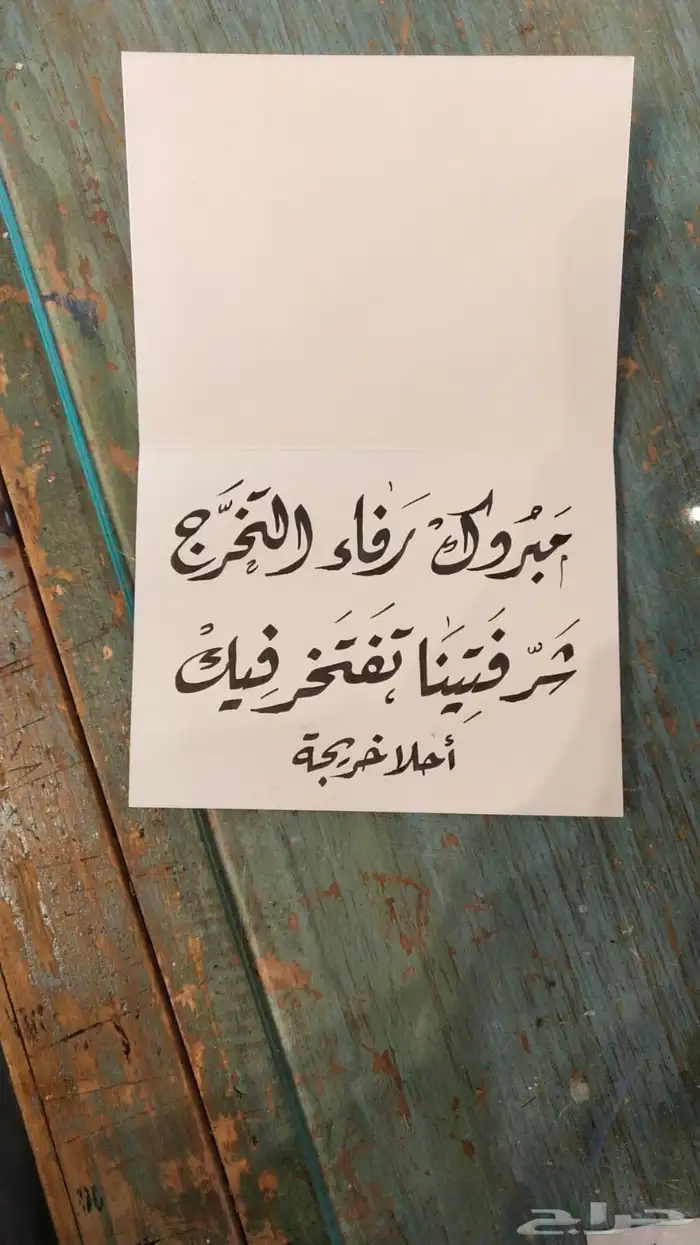 مَبرُوكْ رَفاء التخرَّج
شَرّفَتِينَا تفَتَخَر فِيكْ
أحلا خريجة
حراج